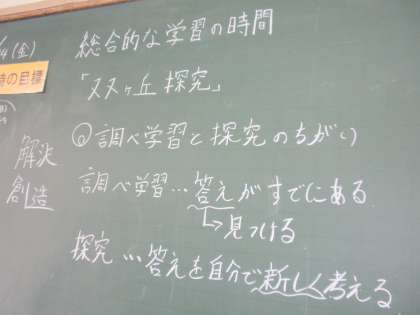 /4(金)
時の目標
解決
創造
総合的な学習の時間
「ヌヌヶ丘 探究」
◎調べ学習と探究のちがい
調べ学習…答えがすでにある
→見つける
探究…答えを自分で新しく考える